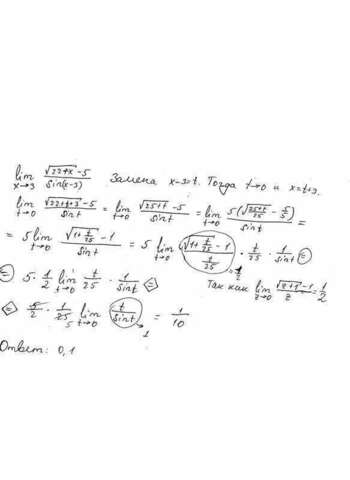 lim x→3 √(22+x) -5 / sin(x-3) Замена x-3=t. Тогда t→0 и x=t+3.
lim t→0 √(22+t+3) -5 / sin t = lim t→0 √(25+t) -5 / sin t = lim t→0 5(√((25+t)/25) - 5/5) / sin t =
= 5 lim t→0 √(1+t/25) -1 / sin t = 5 lim t→0 (√(1+t/25) -1) / (t/25) → 1/2 · t/25 · 1/sin t =
= 5 · 1/2 lim t→0 t/25 · 1/sin t = Так как lim z→0 √(z+1) -1 / z = 1/2
= 5/2 · 1/25 5 lim t→0 t/sin t → 1 = 1/10
Ответ: 0,1